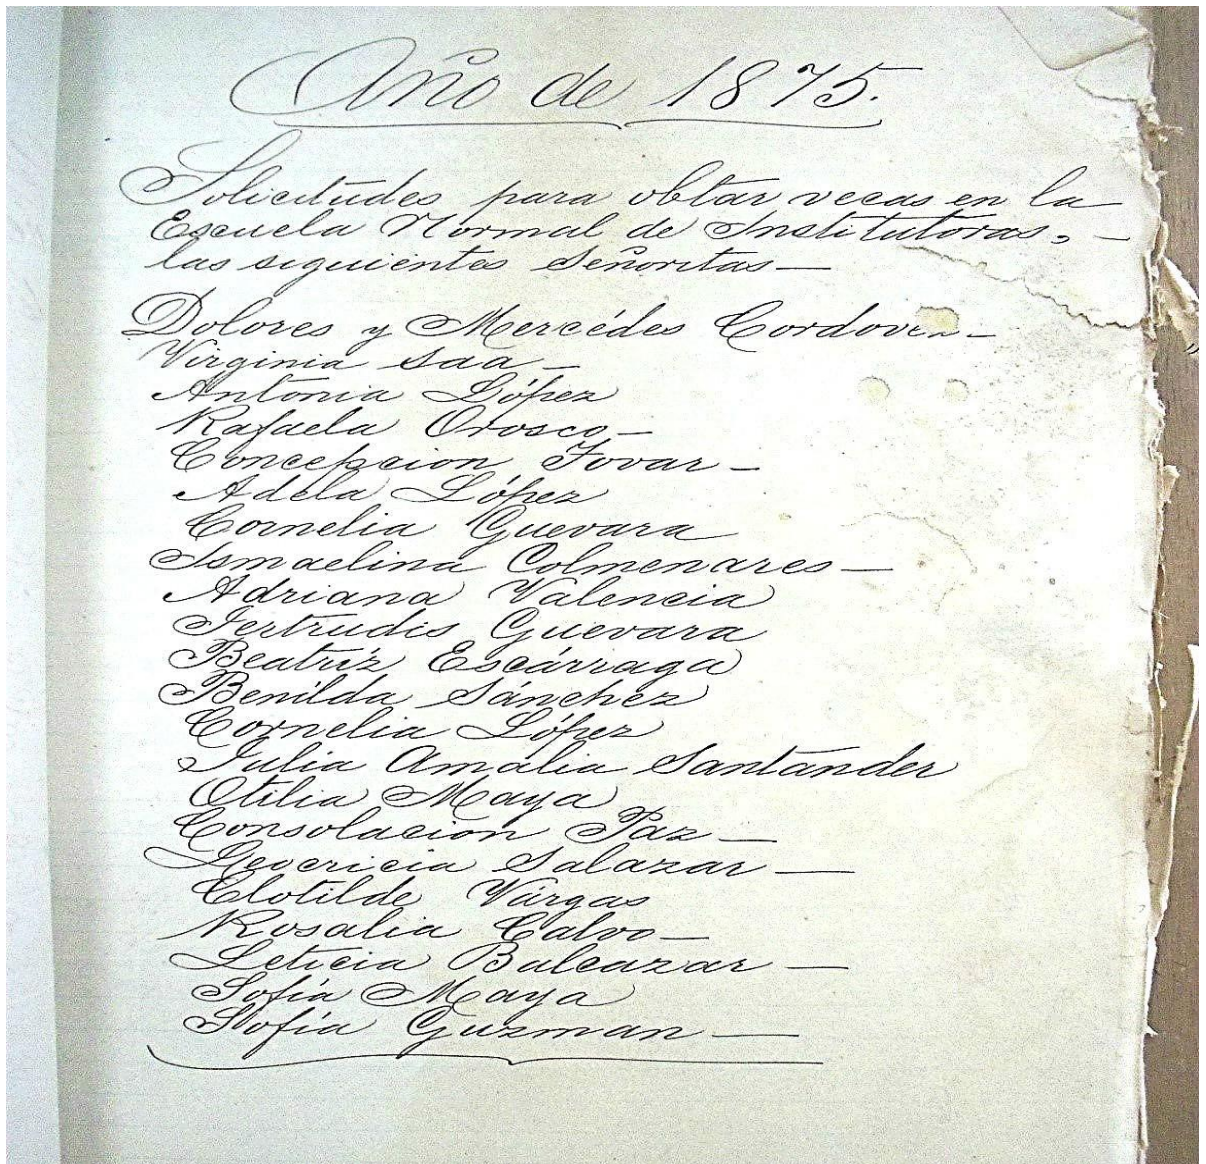 Año de 1875.
Solicitudes para obtar vecas en la
Escuela Normal de Institutoras,
las siguientes Señoritas—
Dolores y Mercédes Cordovez—
Virginia Saa—
Antonia López
Rafaela Orosco—
Concepcion Tovar—
Adela López
Cornelia Guevara
Ismaelina Colmenares—
Adriana Valencia
Gertrudis Guevara
Beatríz Escárraga
Benilda Sánchez
Cornelia López
Julia Amalia Santander
Otilia Maya
Consolacion Paz—
Leocricia Salazar—
Clotilde Várgas
Rosalia Calvo—
Leticia Balcazar—
Sofía Maya
Sofía Guzman—